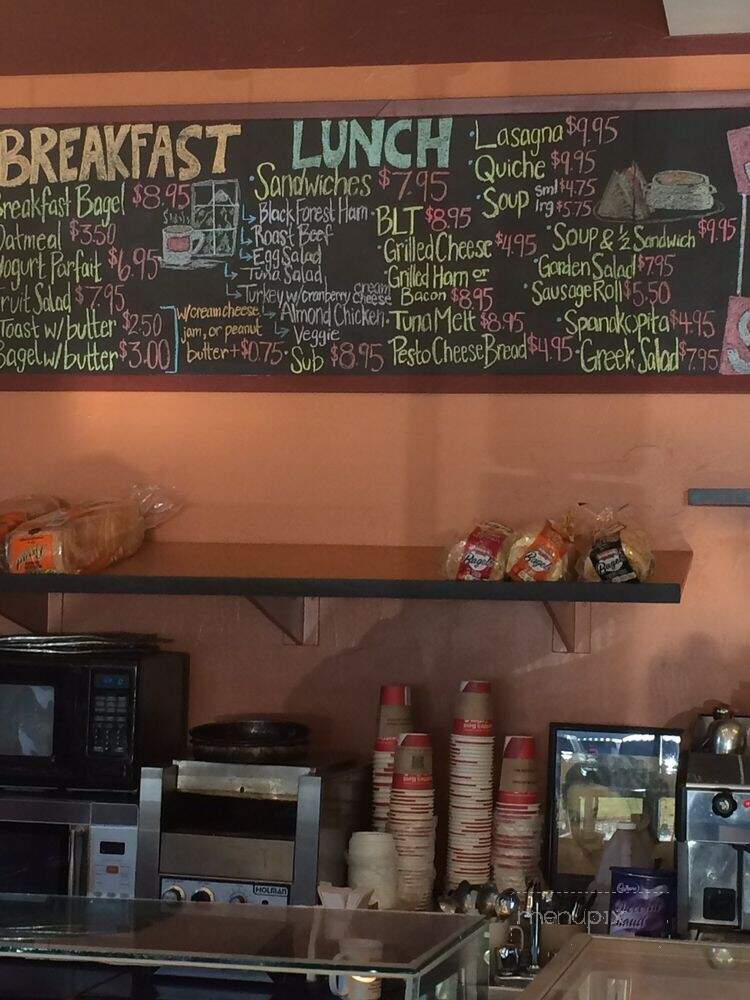 BREAKFAST
Breakfast Bagel $8.95
Oatmeal $3.50
Yogurt Parfait $6.95
Fruit Salad $7.95
Toast w/ butter $2.50
Bagel w/ butter $3.00
w/ cream cheese,
jam, or peanut
butter + $0.75
LUNCH
• Sandwiches $7.95
Black Forest Ham
Roast Beef
Egg Salad
Tuna Salad
Turkey w/ cranberry cream cheese
Almond Chicken
Veggie
• Sub $8.95
• BLT $8.95
• Grilled Cheese $4.95
• Grilled Ham or
Bacon $8.95
• Tuna Melt $8.95
• Pesto Cheese Bread $4.95
• Lasagna $9.95
• Quiche $9.95
• Soup sml $4.75
lrg $5.75
• Soup & ½ Sandwich $9.95
• Garden Salad $7.95
• Sausage Roll $5.50
• Spanakopita $4.95
• Greek Salad $7.95
Bagels
Bagels
Bagels
HOLMAN
Cadbury
menupix